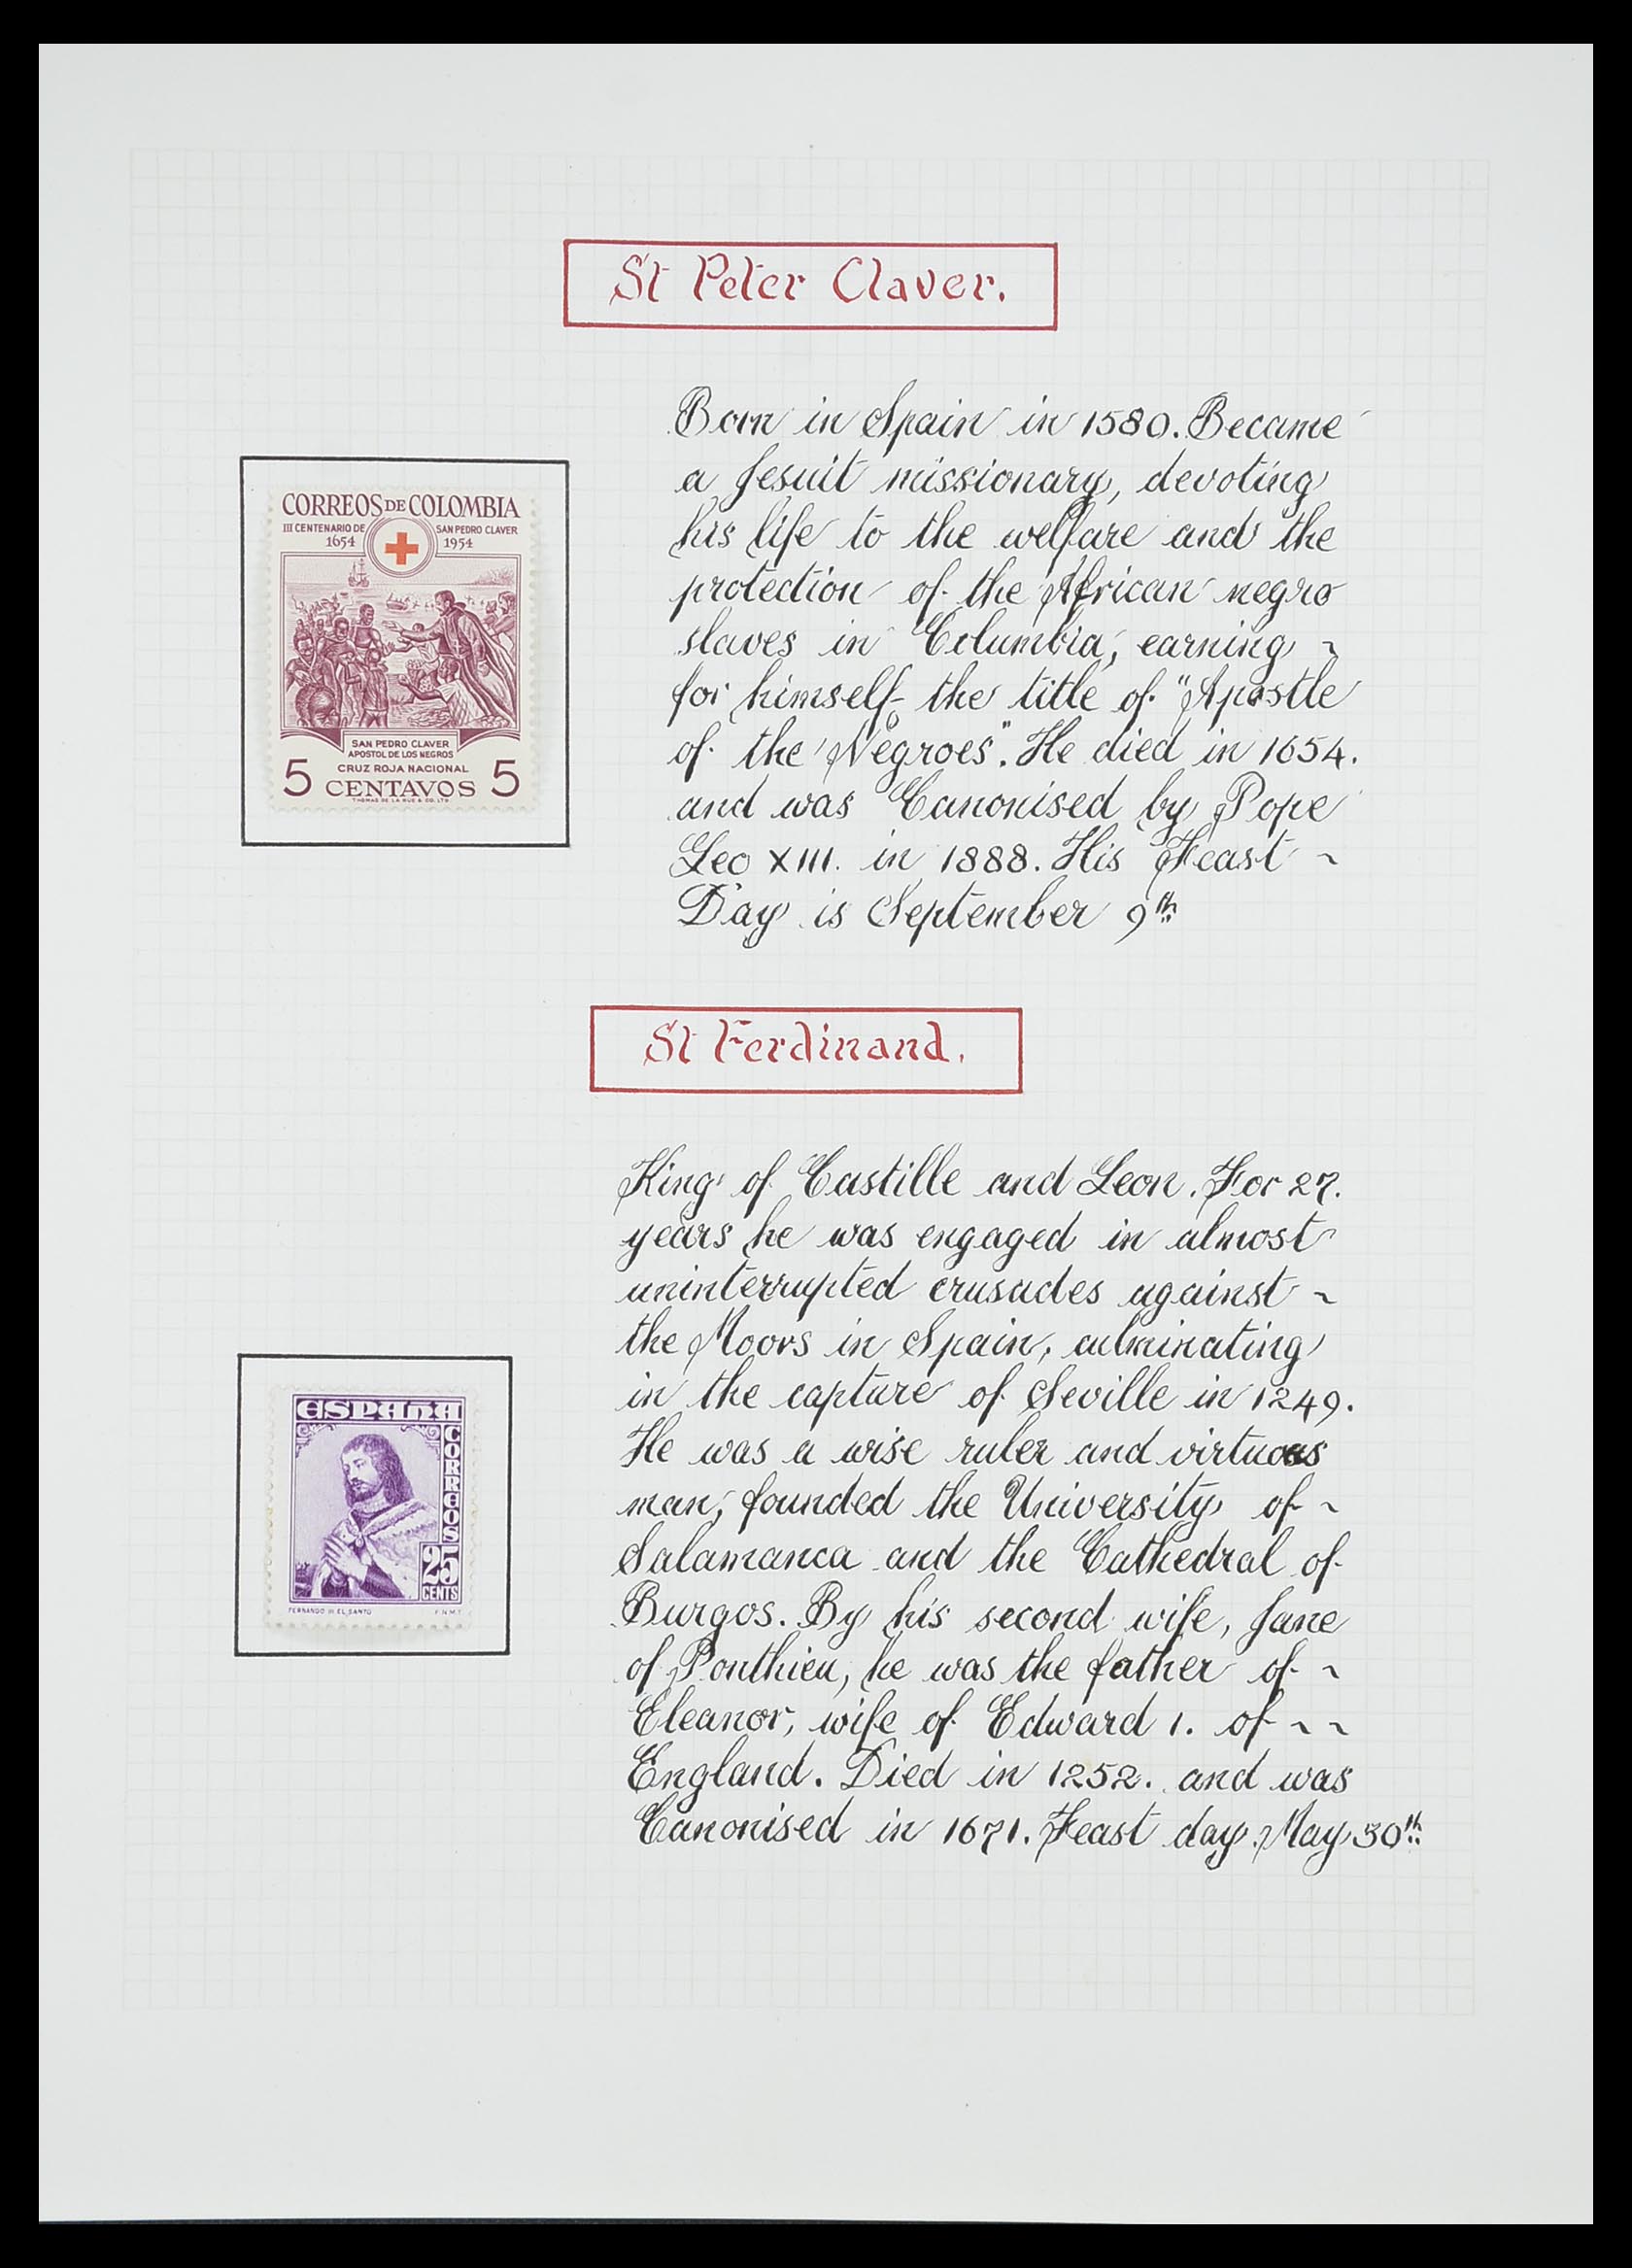 St Peter Claver.
Born in Spain in 1580. Became
a Jesuit missionary, devoting
his life to the welfare and the
protection of the African negro
slaves in Columbia, earning ~
for himself the title of "Apostle
of the Negroes". He died in 1654.
and was Canonised by Pope
Leo XIII. in 1888. His Feast ~
Day is September 9th
CORREOS DE COLOMBIA
III CENTENARIO DE SAN PEDRO CLAVER
1654 1954
SAN PEDRO CLAVER
APOSTOL DE LOS NEGROS
CRUZ ROJA NACIONAL
5 CENTAVOS 5
THOMAS DE LA RUE & CO. LTD
St Ferdinand.
King of Castille and Leon. For 27.
years he was engaged in almost
uninterrupted crusades against ~
the Moors in Spain, culminating
in the capture of Seville in 1249.
He was a wise ruler and virtuous
man, founded the University of ~
Salamanca and the Cathedral of
Burgos. By his second wife, Jane
of Ponthieu, he was the father of ~
Eleanor, wife of Edward 1. of ~ ~
England. Died in 1252. and was
Canonised in 1671. Feast day. May 30th
ESPAÑA
CORREOS
25
CENTS
FERNANDO III EL SANTO F.N.M.T.